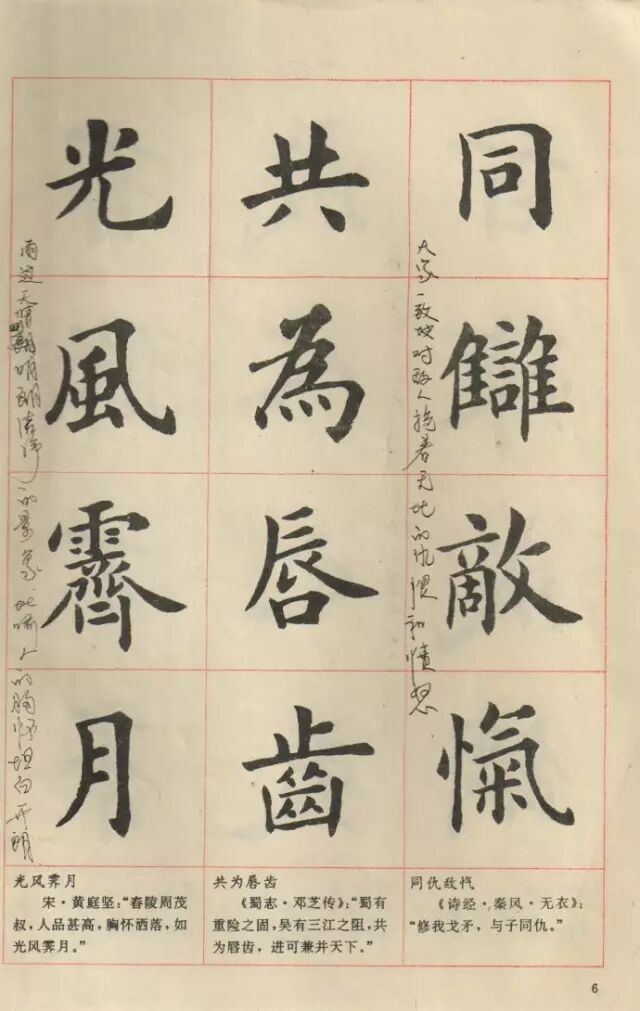 同讎敵愾
共為唇齒
光風霽月
大家一致地对敌人抱着无比的仇恨和愤怒
雨过天晴明朗清净的景象比喻人的胸怀坦白开朗
光风霁月
宋·黄庭坚:“舂陵周茂
叔,人品甚高,胸怀洒落,如
光风霁月。”
共为唇齿
《蜀志·邓芝传》:“蜀有
重险之固,吴有三江之阻,共
为唇齿,进可兼并天下。”
同仇敌忾
《诗经·秦风·无衣》:
“修我戈矛,与子同仇。”
6